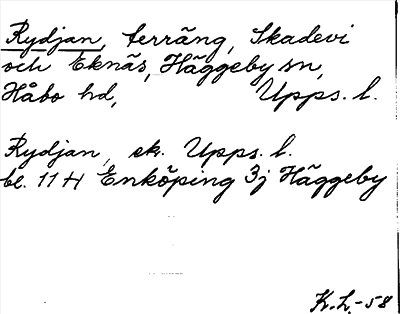 Rydjan, terräng, Skadevi
och Eknäs, Häggeby sn,
Håbo hd, Upps. l.
Rydjan, ek. Upps. l.
bl. 11 H Enköping 3j Häggeby
K.L.-58